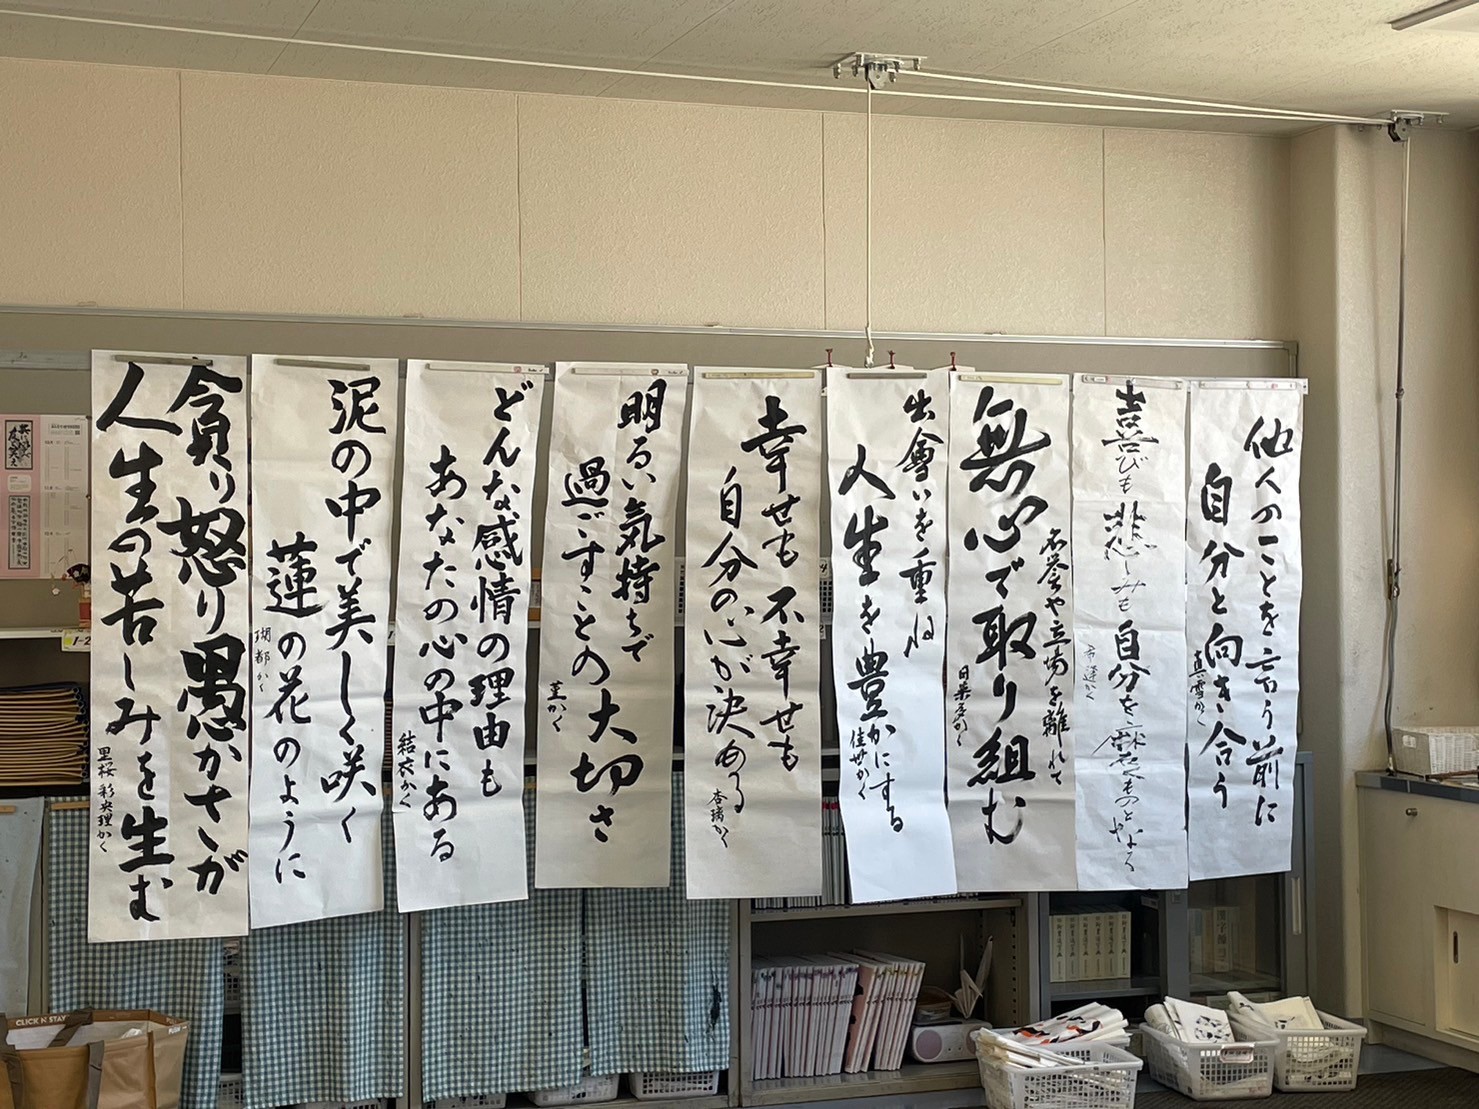 他人のことを言う前に
自分と向き合う
真雪かく
喜びも悲しみも自分を磨くものとなる
名誉や立場を離れて
無心で取り組む
日菜多かく
出會いを重ね
人生を豊かにする
佳世かく
幸せも不幸せも
自分の心が決める
杏璃かく
明るい気持ちで
過ごすことの大切さ
菫かく
どんな感情の理由も
あなたの心の中にある
結衣かく
泥の中で美しく咲く
蓮の花のように
瑚都かく
貪り怒り愚かさが
人生の苦しみを生む
里桜 彩央理かく
1-2
CLICK N STAY